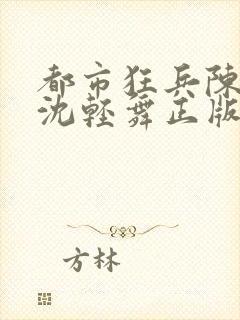 都市狂兵陳
沈輕舞正版
方林